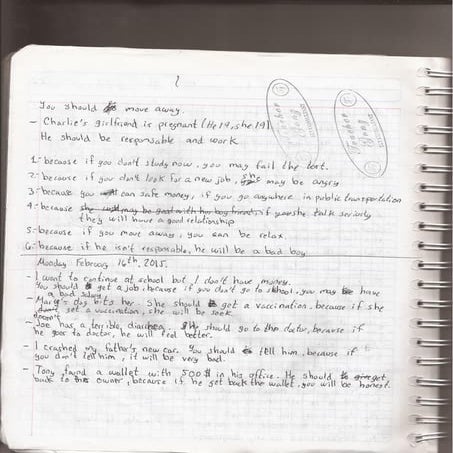 You should move away.
- Charlie's girlfriend is pregnant (He 19, she 19)
He should be responsable and work
1- because if you don't study now, you may fail the test.
2- because if you don't look for a new job, she may be angry
3- because you can safe money, if you go anywhere in public transportation
4- because she will may be good with her boy friend, if you/she talk seriously
they will have a good relationship
5- because if you move away, you can be relax
6- because if he isn't responsable, he will be a bad boy
Monday February 16th, 2015.
- I want to continue at school but I don't have money.
You should get a job, because if you don't go to school, you may have
a bad salary
- Mary's dog bits her. She should get a vaccination, because if she
doesn't get a vaccination, she will be seek
- Joe has a terrible, diarrhea, should go to the doctor, because if
he goes to doctor, he will feel better.
- I crashed my father's new car. You should tell him, because if
you don't tell him, it will be very bad.
- Tony found a wallet with 500$ in his office. He should get
back to the owner, because if he get back the wallet, you will be honest.